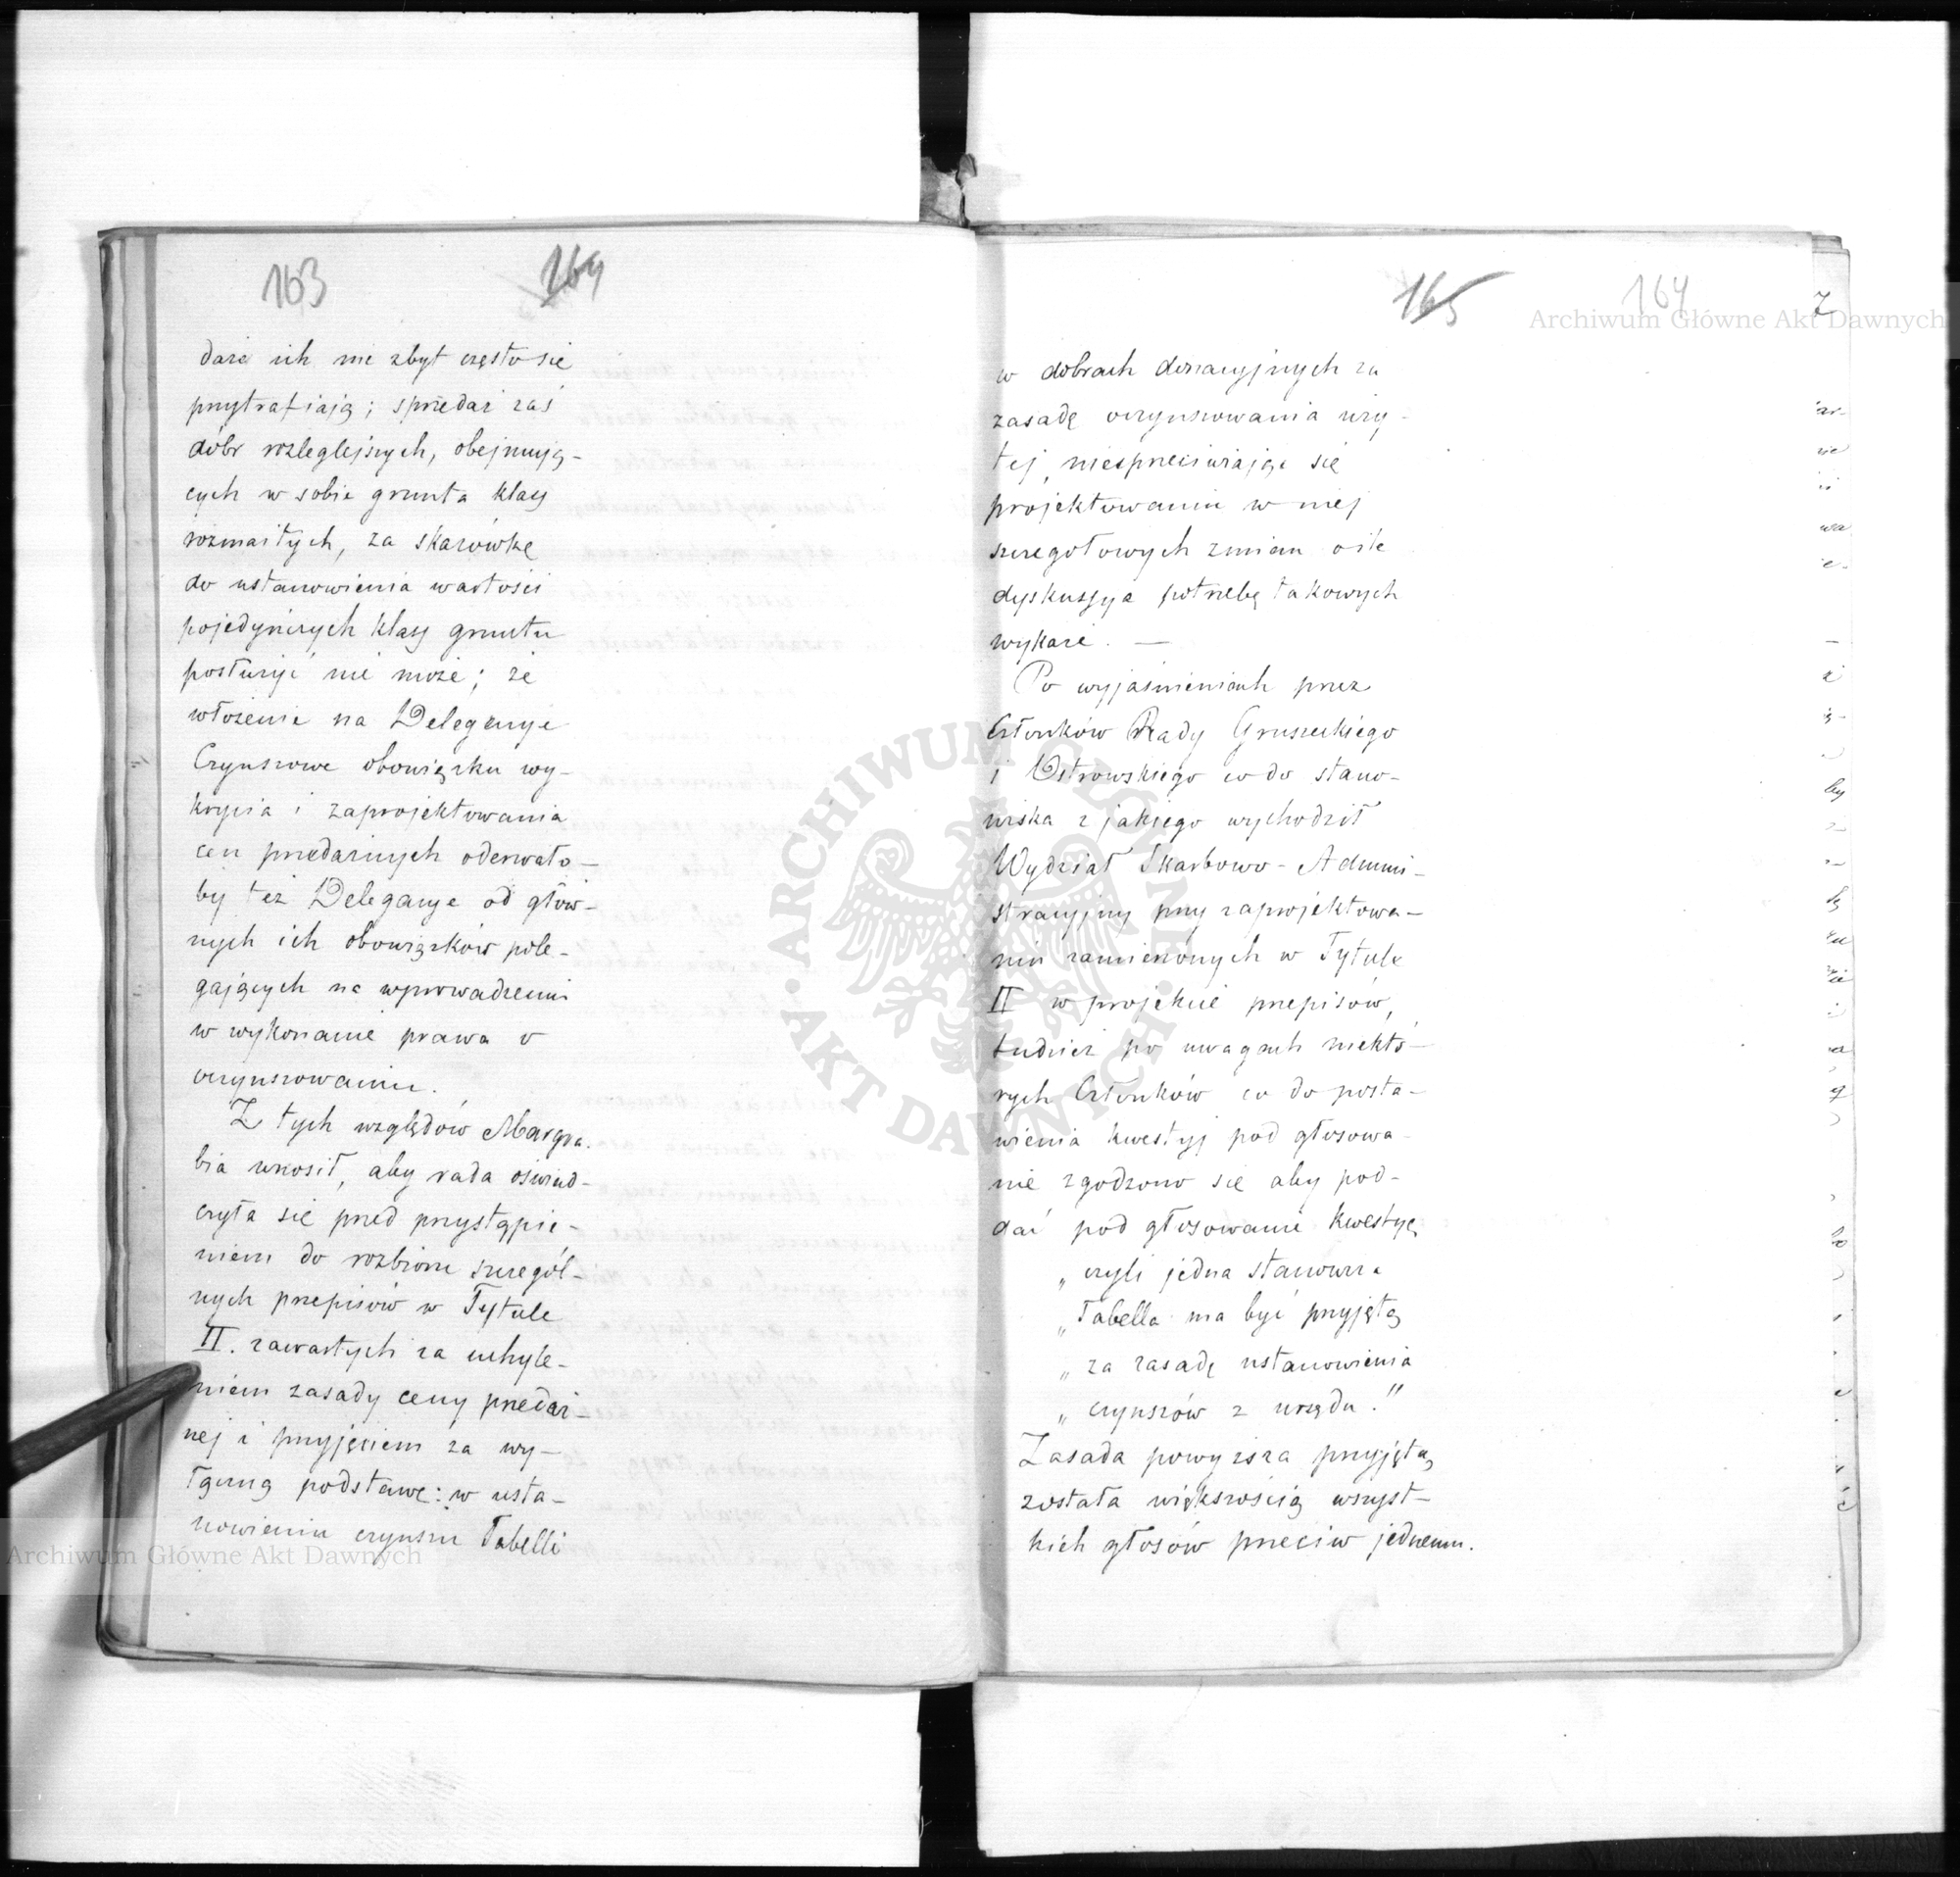 163 164
daże ich nie zbyt często się
przytrafiają; sprzedaż zaś
dóbr rozleglejszych, obejmują-
cych w sobie grunta klass
rozmaitych, za skazówkę
do ustanowienia wartości
pojedyńczych klass gruntu
posłużyć nie może; że
włożenie na Delegacyje
Czynszowe obowiązku wy-
krycia i zaprojektowania
cen przedażnych oderwało-
by też Delegacye od głów-
nych ich obowiązków pole-
gających na wprowadzeniu
w wykonanie prawa o
oczynszowaniu.
Z tych względów Margra-
bia wnosił, aby rada oświad-
czyła się przed przystąpie-
niem do rozbioru szczegól-
nych przepisów w Tytule
II. zawartych za uchyle-
niem zasady ceny przedaż-
nej i przyjęciem za wy-
łączną podstawę: w usta-
nowieniu czynszu Tabelli
165 164
7
w dobrach donacyjnych za
zasadę oczynszowania uży-
tej, niesprzeciwiając się
projektowaniu w niej
szczegółowych zmian o ile
dyskussya potrzebę takowych
wykaże. —
Po wyjaśnieniach przez
Członków Rady Gruszeckiego
i Ostrowskiego co do stano-
wiska z jakiego wychodził
Wydział Skarbowo-Admini-
stracyjny przy zaprojektowa-
niu zamieszczonych w Tytule
II w projekcie przepisów,
tudzież po uwagach niektó-
rych Członków co do posta-
wienia kwestyj pod głosowa-
nie zgodzono się aby pod-
dać pod głosowanie kwestyę
„czyli jedna stanowcza
„Tabella ma być przyjętą
„za zasadę ustanowienia
„czynszów z urzędu."
Zasada powyższa przyjętą
została większością wszyst-
kich głosów przeciw jednemu.
Archiwum Główne Akt Dawnych
Archiwum Główne Akt Dawnych
ARCHIWUM GŁÓWNE AKT DAWNYCH